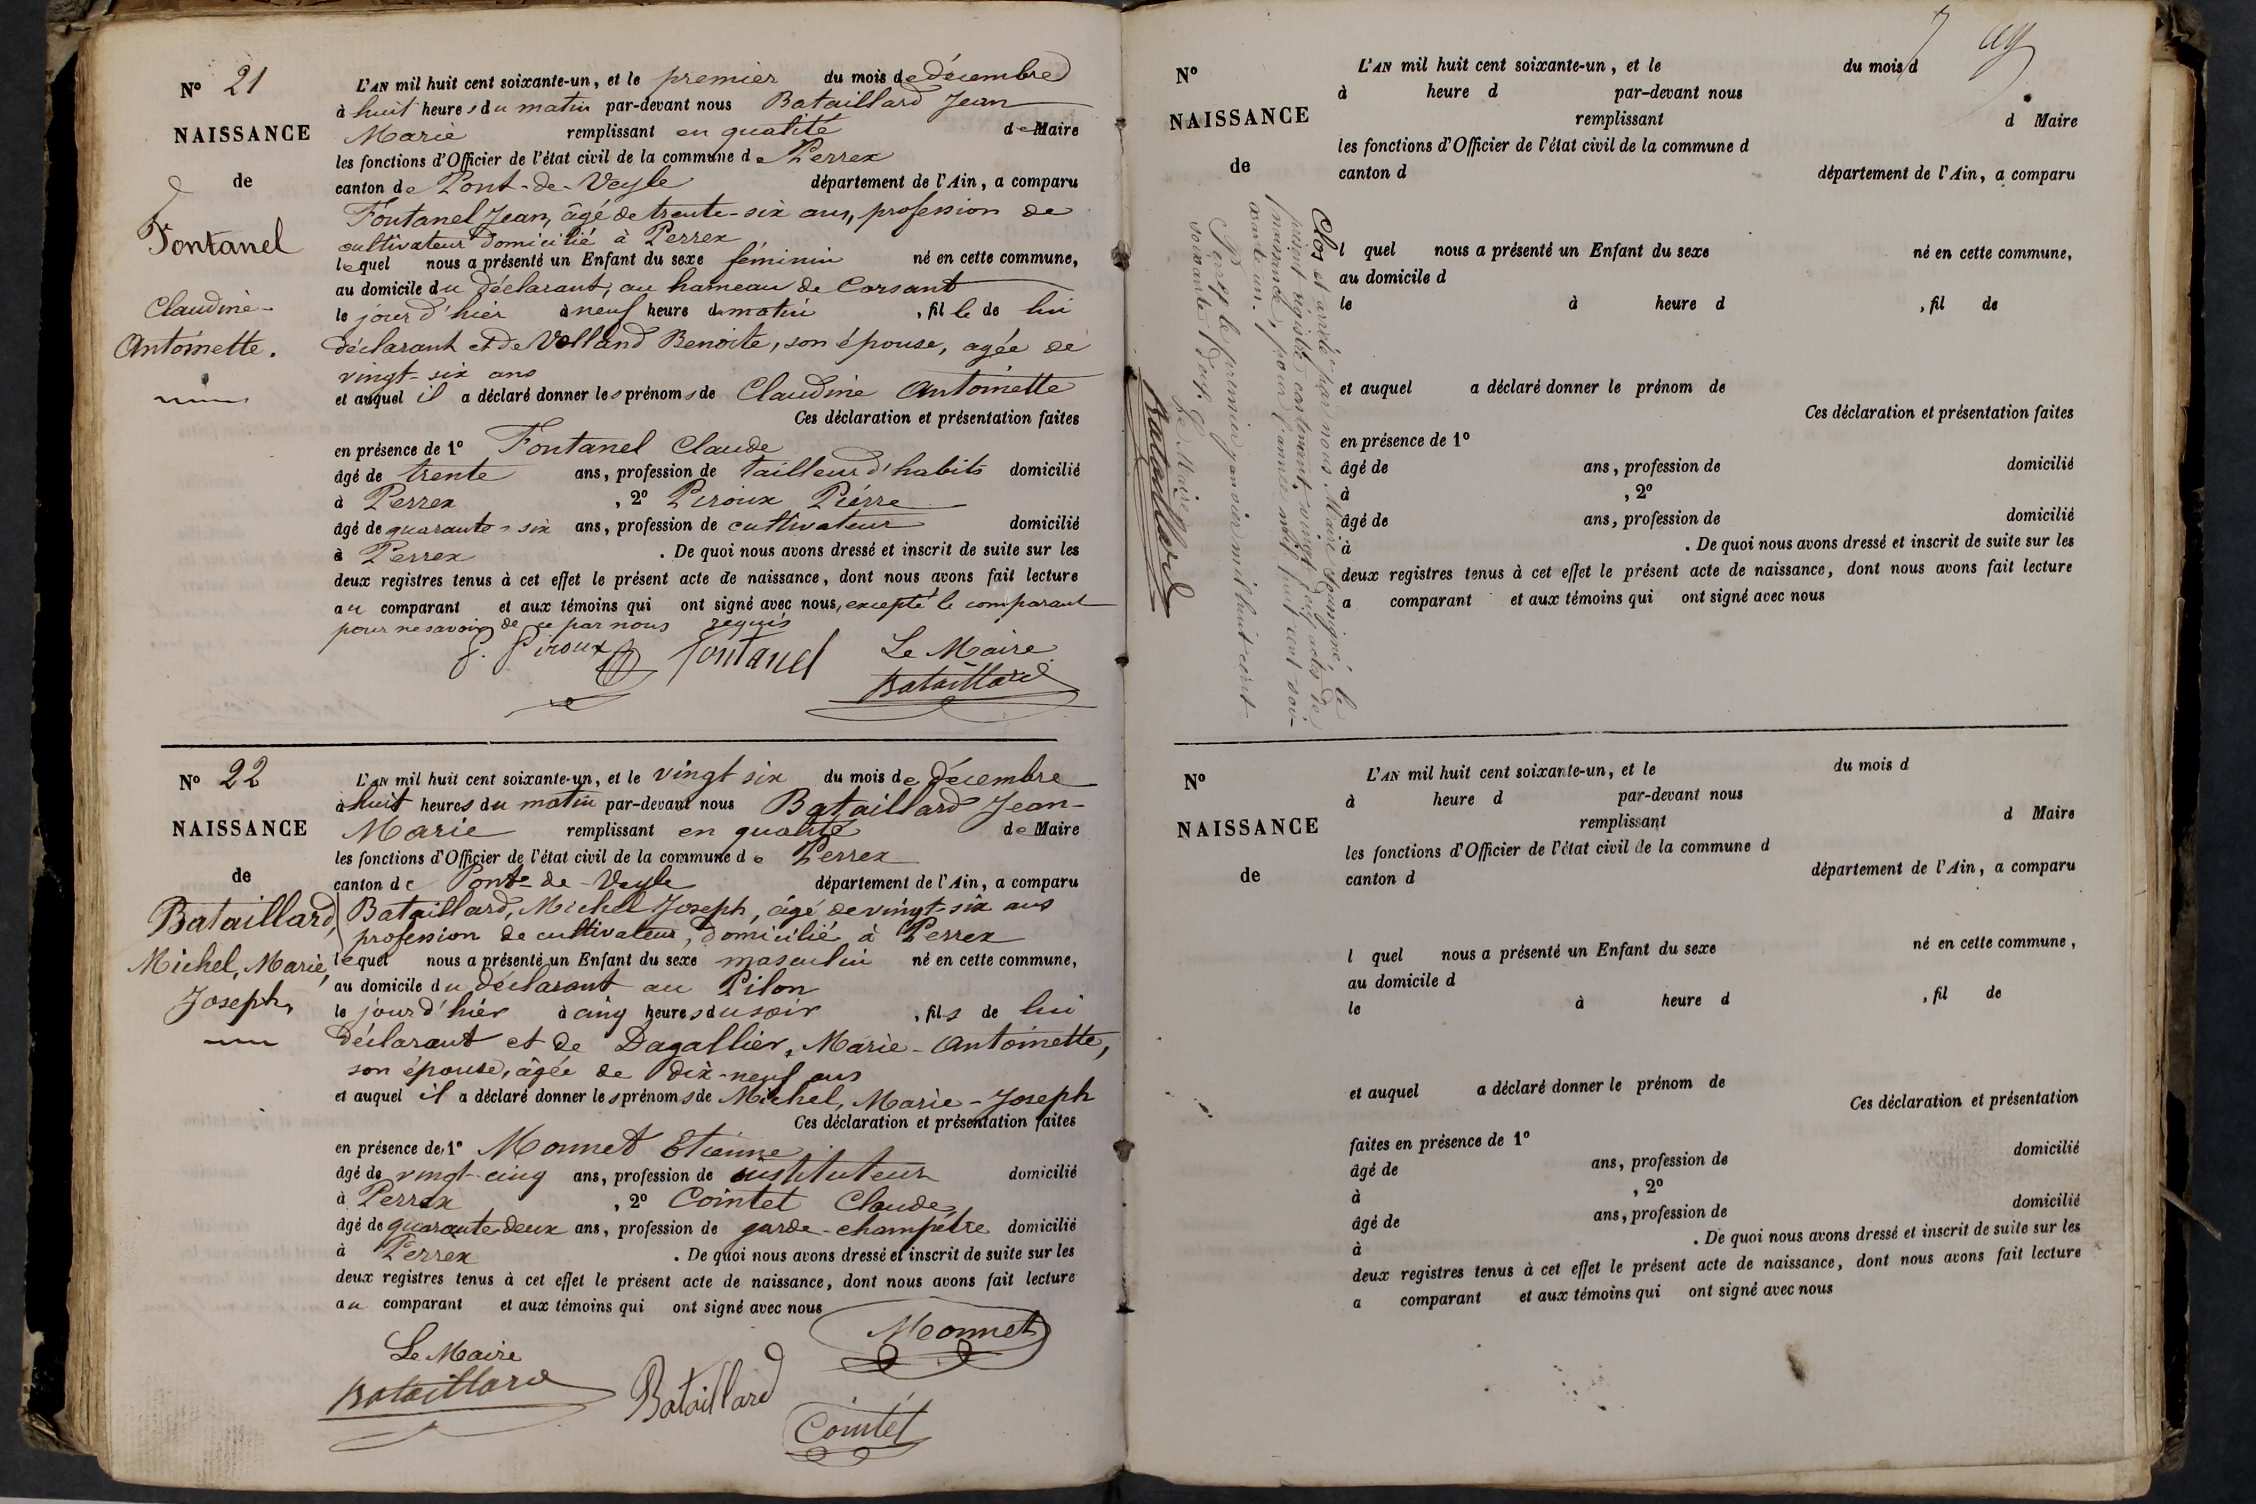 N° 21
NAISSANCE
de
Fontanel
Claudine-
Antoinette.
L'AN mil huit cent soixante-un, et le premier du mois de décembre
à huit heures du matin par-devant nous Bataillard Jean
Marie remplissant en qualité de Maire
les fonctions d'Officier de l'état civil de la commune de Perrex
canton de Pont-de-Veyle département de l'Ain, a comparu
Fontanel Jean, âgé de trente-six ans, profession de
cultivateur domicilié à Perrex
lequel nous a présenté un Enfant du sexe féminin né en cette commune,
au domicile du déclarant, au hameau de Corsant
le jour d'hier à neuf heure du matin, fille de lui
déclarant et de Volland Benoite, son épouse, agée de
vingt-six ans
et auquel il a déclaré donner les prénoms de Claudine Antoinette
Ces déclaration et présentation faites
en présence de 1° Fontanel Claude
âgé de trente ans, profession de tailleur d'habits domicilié
à Perrex, 2° Piroux Pierre
âgé de quarante-six ans, profession de cultivateur domicilié
à Perrex. De quoi nous avons dressé et inscrit de suite sur les
deux registres tenus à cet effet le présent acte de naissance, dont nous avons fait lecture
au comparant et aux témoins qui ont signé avec nous, excepté le comparant
pour ne savoir de ce par nous requis
P. Piroux Fontanel Le Maire
Bataillard
N° 22
NAISSANCE
de
Bataillard,
Michel, Marie,
Joseph,
L'AN mil huit cent soixante-un, et le vingt six du mois de décembre
à huit heures du matin par-devant nous Bataillard Jean-
Marie remplissant en qualité de Maire
les fonctions d'Officier de l'état civil de la commune de Perrex
canton de Pont-de-Veyle département de l'Ain, a comparu
Bataillard, Michel Joseph, âgé de vingt-six ans
profession de cultivateur, domicilié à Perrex
lequel nous a présenté un Enfant du sexe masculin né en cette commune,
au domicile du déclarant au Pilon
le jour d'hier à cinq heures du soir, fils de lui
déclarant et de Dagallier, Marie-Antoinette,
son épouse, âgée de dix-neuf ans
et auquel il a déclaré donner les prénoms de Michel, Marie-Joseph
Ces déclaration et présentation faites
en présence de 1° Monnet Etienne
âgé de vingt-cinq ans, profession de instituteur domicilié
à Perrex, 2° Cointet Claude,
âgé de quarante deux ans, profession de garde-champêtre domicilié
à Perrex. De quoi nous avons dressé et inscrit de suite sur les
deux registres tenus à cet effet le présent acte de naissance, dont nous avons fait lecture
au comparant et aux témoins qui ont signé avec nous
Monnet
Le Maire
Bataillard Bataillard
Cointet
7
N°
NAISSANCE
de
L'AN mil huit cent soixante-un, et le du mois d
à heure d par-devant nous
remplissant d Maire
les fonctions d'Officier de l'état civil de la commune d
canton d département de l'Ain, a comparu
l quel nous a présenté un Enfant du sexe né en cette commune,
au domicile d
le à heure d , fil de
et auquel a déclaré donner le prénom de
Ces déclaration et présentation faites
en présence de 1°
âgé de ans, profession de domicilié
à , 2°
âgé de ans, profession de domicilié
à . De quoi nous avons dressé et inscrit de suite sur les
deux registres tenus à cet effet le présent acte de naissance, dont nous avons fait lecture
a comparant et aux témoins qui ont signé avec nous
Clos et arrêté par nous Maire soussigné, le
présent registre contenant vingt deux actes de
naissance, pour l'année mil huit cent soi-
xante un.
Perrex le premier janvier mil huit cent
soixante deux.
Le Maire
Bataillard
N°
NAISSANCE
de
L'AN mil huit cent soixante-un, et le du mois d
à heure d par-devant nous
remplissant d Maire
les fonctions d'Officier de l'état civil de la commune d
canton d département de l'Ain, a comparu
l quel nous a présenté un Enfant du sexe né en cette commune,
au domicile d
le à heure d , fil de
et auquel a déclaré donner le prénom de
Ces déclaration et présentation
faites en présence de 1° domicilié
âgé de ans, profession de
à , 2° domicilié
âgé de ans, profession de
à . De quoi nous avons dressé et inscrit de suite sur les
deux registres tenus à cet effet le présent acte de naissance, dont nous avons fait lecture
a comparant et aux témoins qui ont signé avec nous